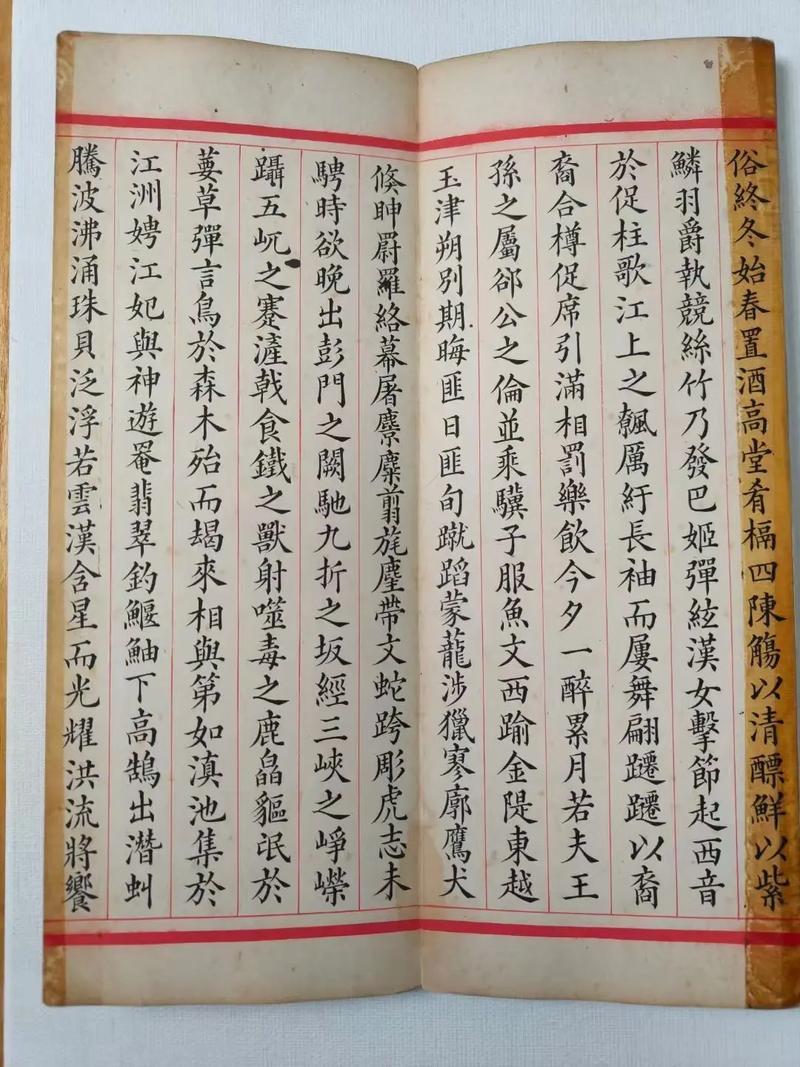 俗終冬始春置酒高堂肴槅四陳觴以清醥鮮以紫
鱗羽爵執競絲竹乃發巴姬彈絃漢女擊節起西音
於促柱歌江上之飆厲紆長袖而屢舞翩躚躚以裔
裔合樽促席引滿相罰樂飲今夕一醉累月若夫王
孫之屬郤公之倫並乘驥子服魚文西踰金隄東越
玉津朔別期晦匪日匪旬蹴蹈蒙龍涉獵寥廓鷹犬
倏眒罻羅絡幕屠麖麋翦旄麈帶文蛇跨彫虎志未
騁時欲晚出彭門之闕馳九折之坂經三峽之崢嶸
躡五屼之蹇滻戟食鐵之獸射噬毒之鹿皛貙氓於
葽草彈言鳥於森木殆而朅來相與第如滇池集於
江洲娉江妃與神遊罨翡翠釣鰋鮋下高鵠出潛虯
騰波沸涌珠貝泛浮若雲漢含星而光耀洪流將饗